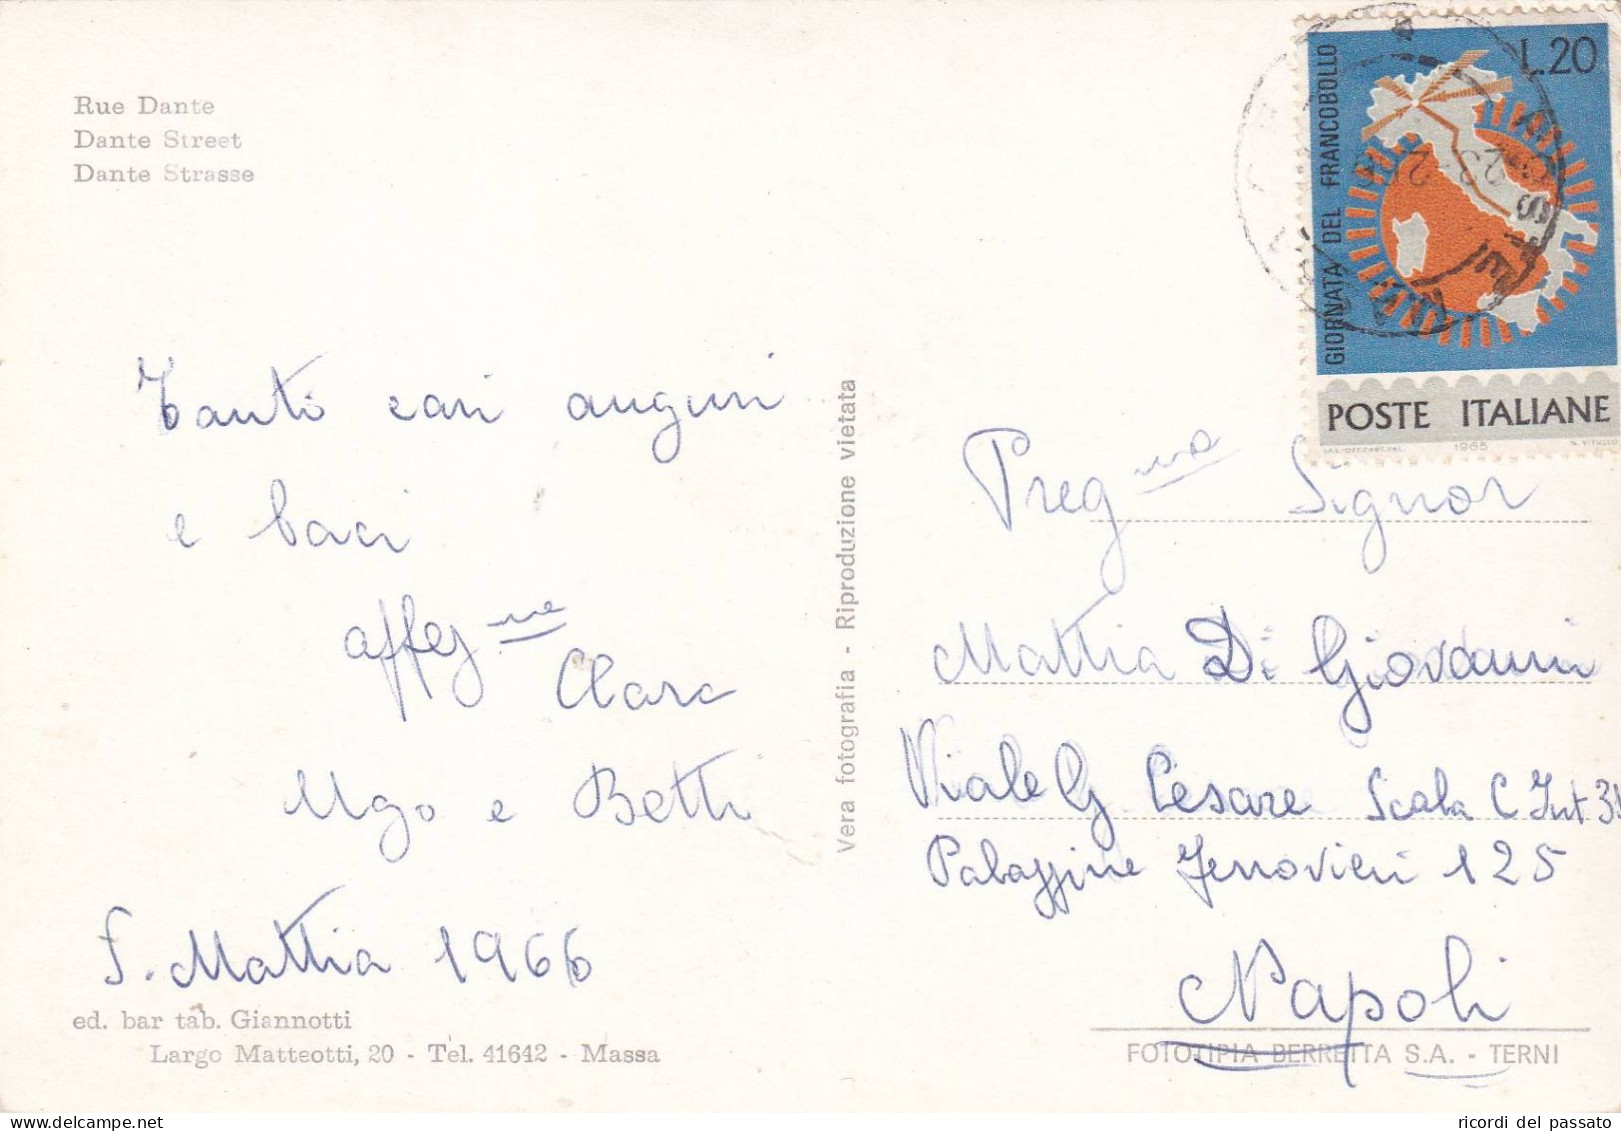 Rue Dante
Dante Street
Dante Strasse
Tanti cari auguri
e baci
affeg me
Clara
Ugo e Betti
S. Mattia 1966
ed. bar tab. Giannotti
Largo Matteotti, 20 - Tel. 41642 - Massa
Vera fotografia - Riproduzione vietata
GIORNATA DEL FRANCOBOLLO
L.20
POSTE ITALIANE
1965
Preg mo Signor
Mattia Di Giovanni
Viale G Cesare Scala C Int
Palazzine Ferrovieri 125
Napoli
FOTOTIPIA BERRETTA S.A. - TERNI
ricordi del passato